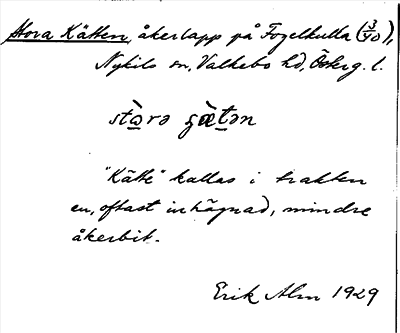 Stora Kätten, åkerlapp på Fogelkulla (3/40),
Nykils sn, Valkebo hd, Österg. l.
stòrə gæ̀tən
"Kätte" kallas i trakten
en, oftast inhägnad, mindre
åkerbit.
Erik Alm 1929